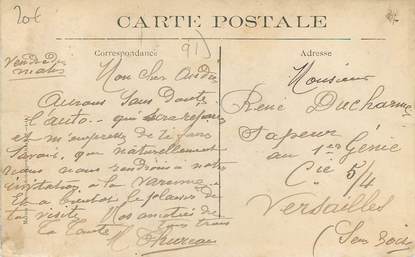 20€
CARTE POSTALE
Correspondance
91)
Adresse
Vendredi
matin
Mon cher André
Aurons sans doute
l'auto qui sera
et m'empresse de te faire
savoir, que naturellement
nous nous rendrons à notre
invitation à la Varenne
Et à bientôt le plaisir de
ta visite Nos amitiés de
ta tante
Monsieur
René Ducharme
Sapeur
au 1er Génie
Cie 5/4
Versailles